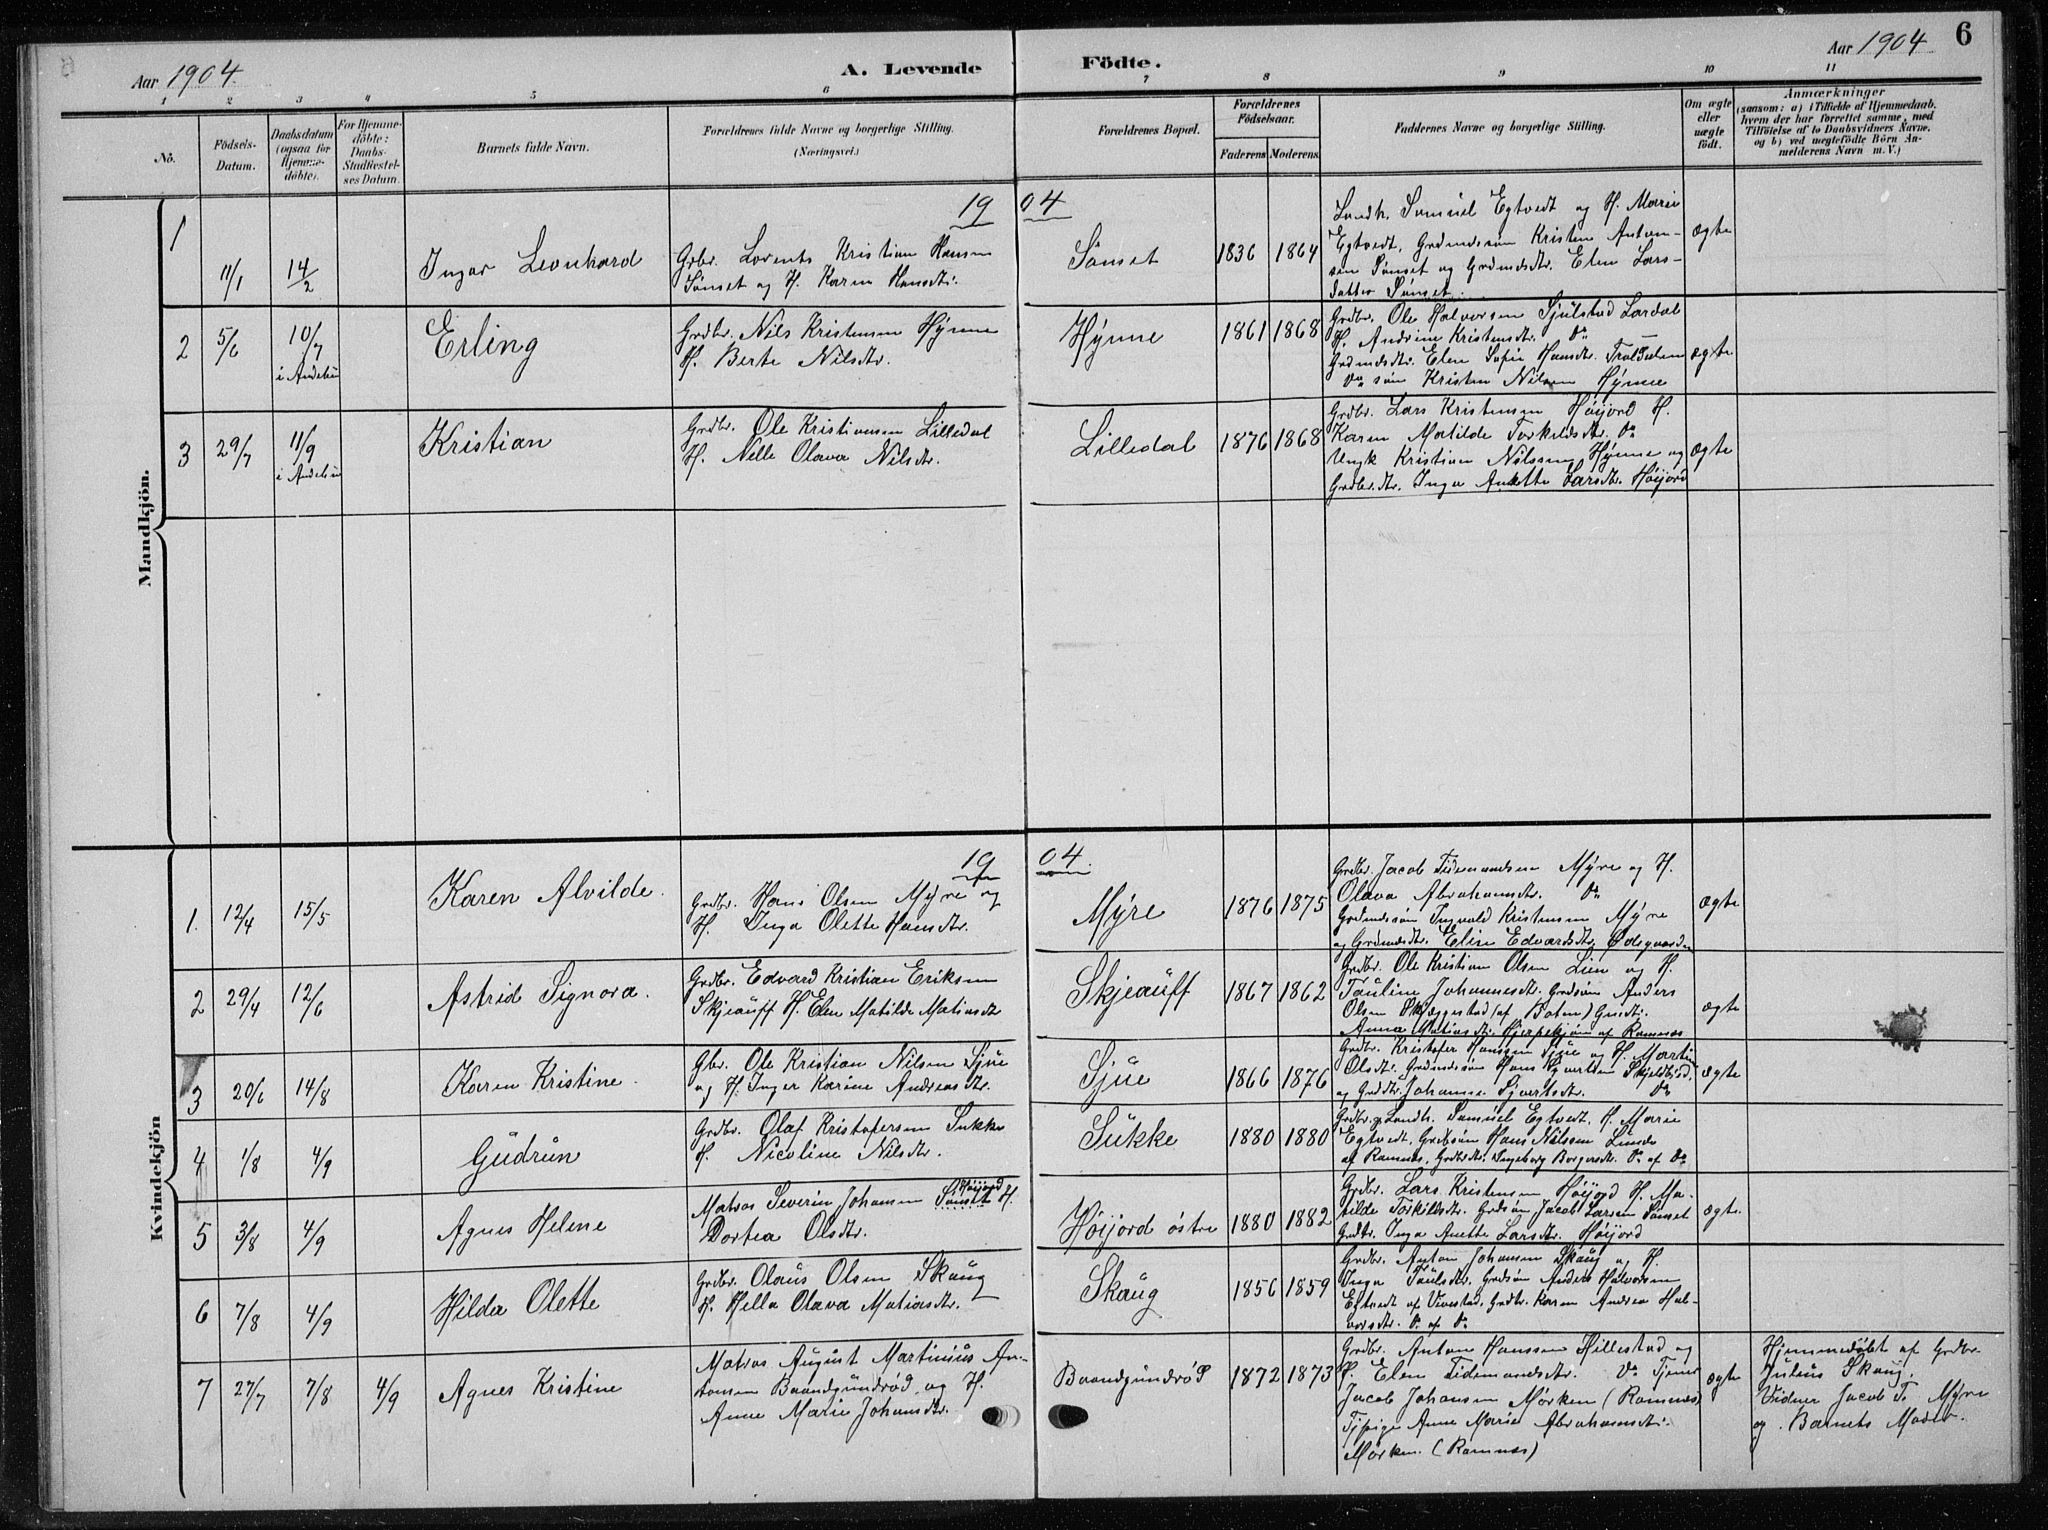 Aar 1904.
A. Levende Födte.
Aar 1904
6
1 2 3 4 5 6 7 8 9 10 11
No.
Födsels-
Datum.
Daabsdatum
(ogsaa for
Hjemme-
döbte).
For Hjemme-
döbte:
Daabs-
Stadfæstel-
ses Datum.
Barnets fulde Navn.
Forældrenes fulde Navne og borgerlige Stilling.
(Næringsvei.)
Forældrenes Bopæl.
Forældrenes
Födselsaar.
Faderens Moderens
Faddernes Navne og borgerlige Stilling.
Om ægte
eller
uægte
födt.
Anmærkninger
(saasom: a) i Tilfælde af Hjemmedaab,
hvem der har forrettet samme, med
Tilföielse af to Daabsvidners Navne,
og b) ved uægtefödte Börn An-
melderens Navn m. V.)
Mandkjön.
19 04
1
11/1
14/2
Ingar Leonhard
Grbr. Lorents Kristian Hansen
Sønset og H. Karen Hansdtr.
Sønset
1836 1864
Landh. Samuel Egtvedt og H. Marie
Egtvedt, Grdmdssøn Kristen Anton-
sen Sønset og Grdmdsdtr. Elen Lars-
datter Sønset.
ægte
2
5/6
10/7
i Andebu
Erling
Grdbr. Nils Kristensen Hynne
H. Berte Nilsdtr.
Hynne
1861 1868
Grdbr. Ole Halvorsen Sjulstad Lardal
H. Andrine Kristensdtr. Do
Grdmdsdtr. Elen Sofie Hansdtr. Troldalen
Do søn Kristen Nilsen Hynne
ægte
3
29/7
11/9
i Andebu
Kristian
Grdbr. Ole Kristiansen Lilledal
H. Nelle Olava Nilsdtr.
Lilledal
1876 1868
Grdbr. Lars Kristensen Høijord H.
Karen Matilde Torkildsdtr. Do
Ungk Kristian Nilssen Hynne og
Grdbr.dtr. Inga Anette Larsdtr. Høijord
ægte
Kvindekjön
19 04.
1.
12/4
15/5
Karen Alvilde.
Grdbr. Hans Olsen Myre og
H. Inga Olette Hansdtr.
Myre
1876 1875
Grdbr. Jacob Tidemandsen Myre og H.
Olava Abrahamsdtr. Do
Grdmdssøn Ingvald Kristensen Myre
og Grdmdsdtr. Elise Edvardsdtr. Ødegaarden
ægte
2
29/4
12/6
Astrid Signora.
Grdbr. Edvard Kristian Eriksen
Skjeauff H. Elen Matilde Matiasdtr
Skjeauff
1867 1862
Grdbr. Ole Kristian Olsen Lien og H.
Pauline Johannesdtr. Grdsøn Anders
Olsen Skjæggestad (af Boten) Grdtr.
Anna Matiasdtr. Hjerpekjøn af Ramnæs
ægte
3
20/6
14/8
Karen Kristine.
Gbr. Ole Kristian Nilsen Sjue
og H. Inger Karine Andreasdtr.
Sjue
1866 1876
Grdbr. Kristofer Hanssen Sjue og H. Martine
Olsdtr. Grdmdssøn Hans Syvertsen Skjeldbred,
og Grddtr. Johanne Syvertsdtr. Do
ægte
4
1/8
4/9
Gudrun
Grdbr. Olaf Kristofersen Sukke
H. Nicoline Nilsdtr.
Sukke
1880 1880
Grdbr. og Landh. Samuel Egtvedt. H. Marie
Egtvedt, Grdbsøn Hans Nilssen Linnes
af Ramnæs, Grdbrdtr. Ingeborg Borgersdtr. Do af Do
5
3/8
4/9
Agnes Helene
Høijord
Matros Severin Johansen Sønset H.
Dortea Olsdtr.
Høijord østre
1880 1882
Grdbr. Lars Kristensen Høijord H. Ma-
tilde Torkildsdtr. Grdsøn Jacob Larsen Sønset
Grdtr. Inga Anette Larsdtr. Høijord
ægte.
6
7/8
4/9
Hilda Olette
Grdbr. Olaus Olsen Skaug
H. Hella Olava Matiasdtr.
Skaug
1856 1859
Grdbr. Anton Johansen Skaug og H.
Inga Paulsdtr. Grdsøn Anders Halvorsen
Eftedt af Vivestad, Grdtr. Karen Andrea Hal-
vorsdtr. Do af Do
7
27/7
7/8
4/9
Agnes Kristine
Matros August Martinius An-
tonsen Baandgundrød og H.
Anne Marie Johansdtr.
Baandgundrød
1872 1873
Grdbr. Anton Hanssen Hillestad og
H. Elen Tidemandsdtr. Do Tjener
Jacob Johansen Mørken (Ramnæs)
Tjpige Anne Marie Abrahamsdtr.
Mørken. (Ramnæs)
ægte
Hjemmedøbt af Grdbr.
Julius Skaug.
Vidner Jacob T. Myre
og Barnets Moder.